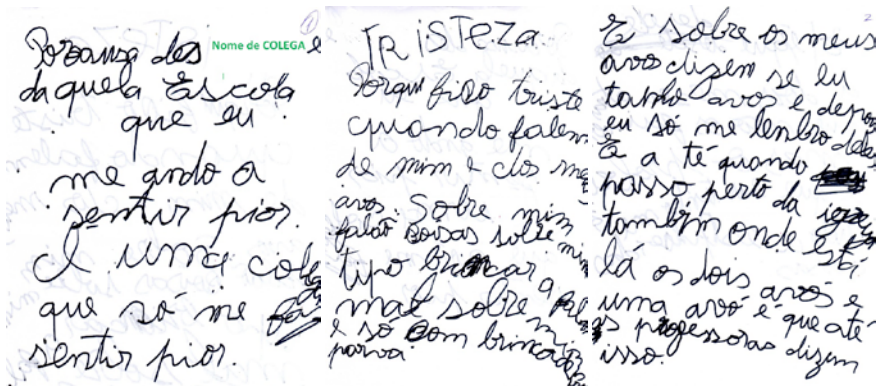 1
Porcausa des Nome de COLEGA e
daquela Escola
que eu
me ando a
sentir pior.
É uma coleg
que só me faz
sentir pior.
TRiSTEZA
Porqui fico triste
quando falem
de mim e dos meus
avos. Sobre mim
falão coisas sobre mim
tipo brincar
mal sobre
e só com brincad
parva
2
E sobre os meus
avos dizem se eu
tanho avós e depois
eu só me lenbro deles
E a té quando
passo perto da igreja
tambīm onde está
lá os dois avós e
uma avó é que até
as professoras dizem
isso.